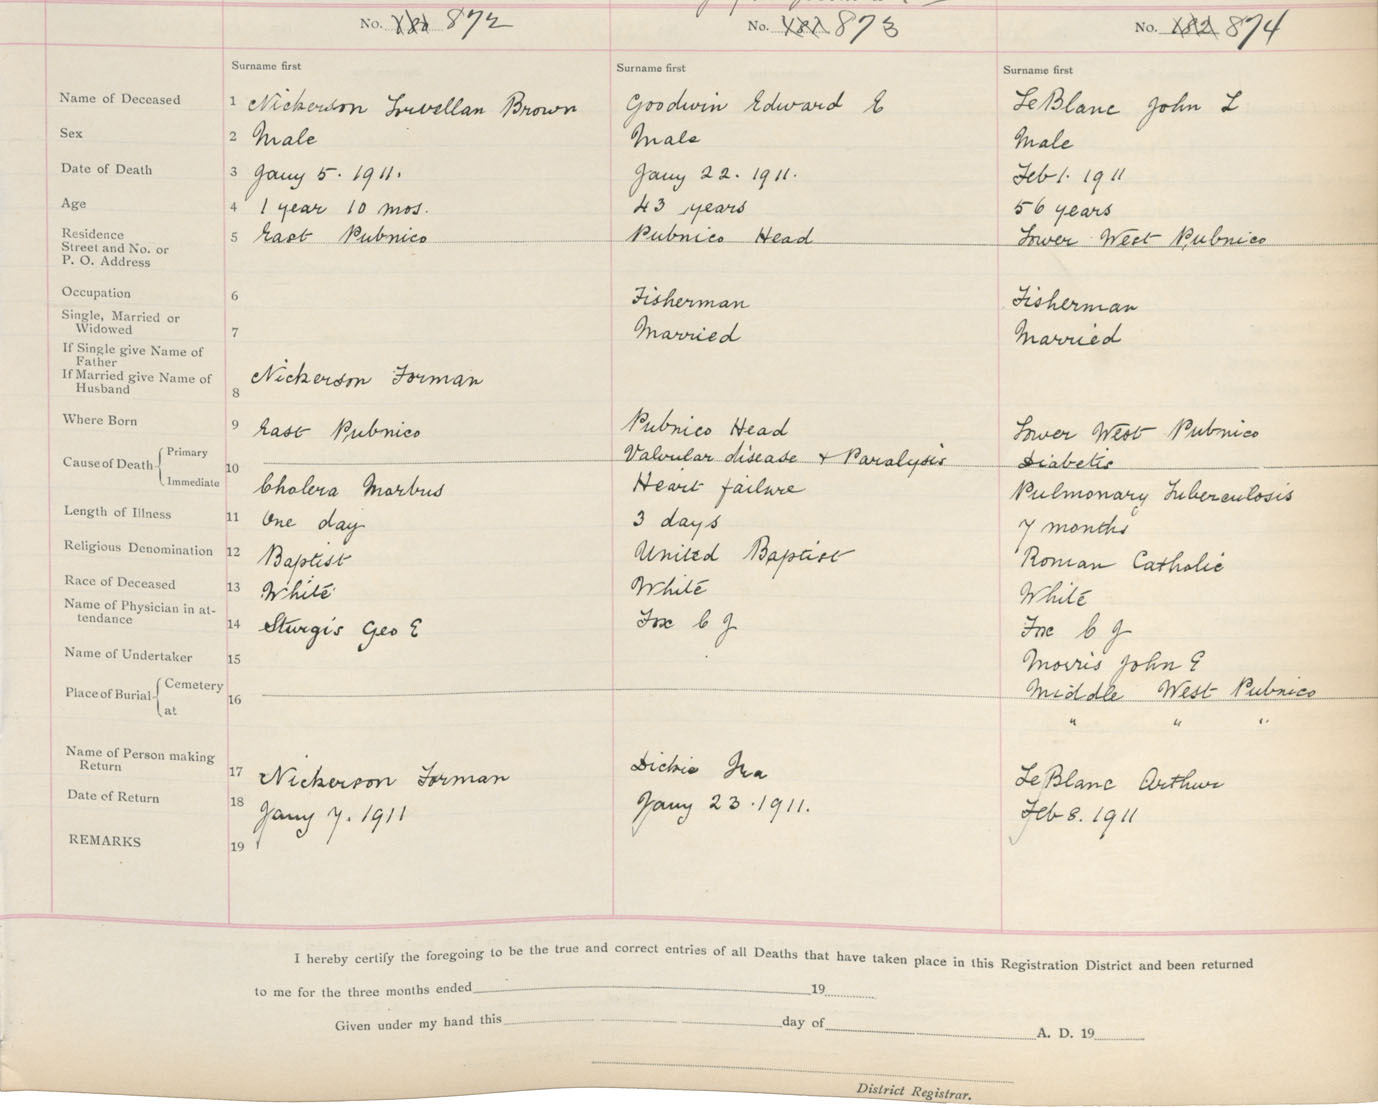 No. 872 No. 873 No. 874
Surname first Surname first Surname first
Name of Deceased 1 Nickerson Brown Goodwin Edward E LeBlanc John L
Sex 2 Male Male Male
Date of Death 3 Jany 5. 1911. Jany 22. 1911. Feb 1. 1911
Age 4 1 year 10 mos. 43 years 56 years
Residence
Street and No. or
P. O. Address
5 East Pubnico Pubnico Head Lower West Pubnico
Occupation 6 Fisherman Fisherman
Single, Married or
Widowed
7 Married Married
If Single give Name of
Father
If Married give Name of
Husband
8 Nickerson Forman
Where Born 9 East Pubnico Pubnico Head Lower West Pubnico
Cause of Death 10
Primary Valvular disease + Paralysis Diabetis
Immediate Cholera Morbus Heart failure Pulmonary Tuberculosis
Length of Illness 11 One day 3 days 7 months
Religious Denomination 12 Baptist United Baptist Roman Catholic
Race of Deceased 13 White White White
Name of Physician in at-
tendance
14 Sturgis Geo E Fox C J Fox C J
Name of Undertaker 15 Morris John E
Place of Burial 16
Cemetery Middle West Pubnico
at " " "
Name of Person making
Return
17 Nickerson Forman Dickie Ira LeBlanc Arthur
Date of Return 18 Jany 7. 1911 Jany 23. 1911. Feb 8. 1911
REMARKS 19
I hereby certify the foregoing to be the true and correct entries of all Deaths that have taken place in this Registration District and been returned
to me for the three months ended 19
Given under my hand this day of A. D. 19
District Registrar.